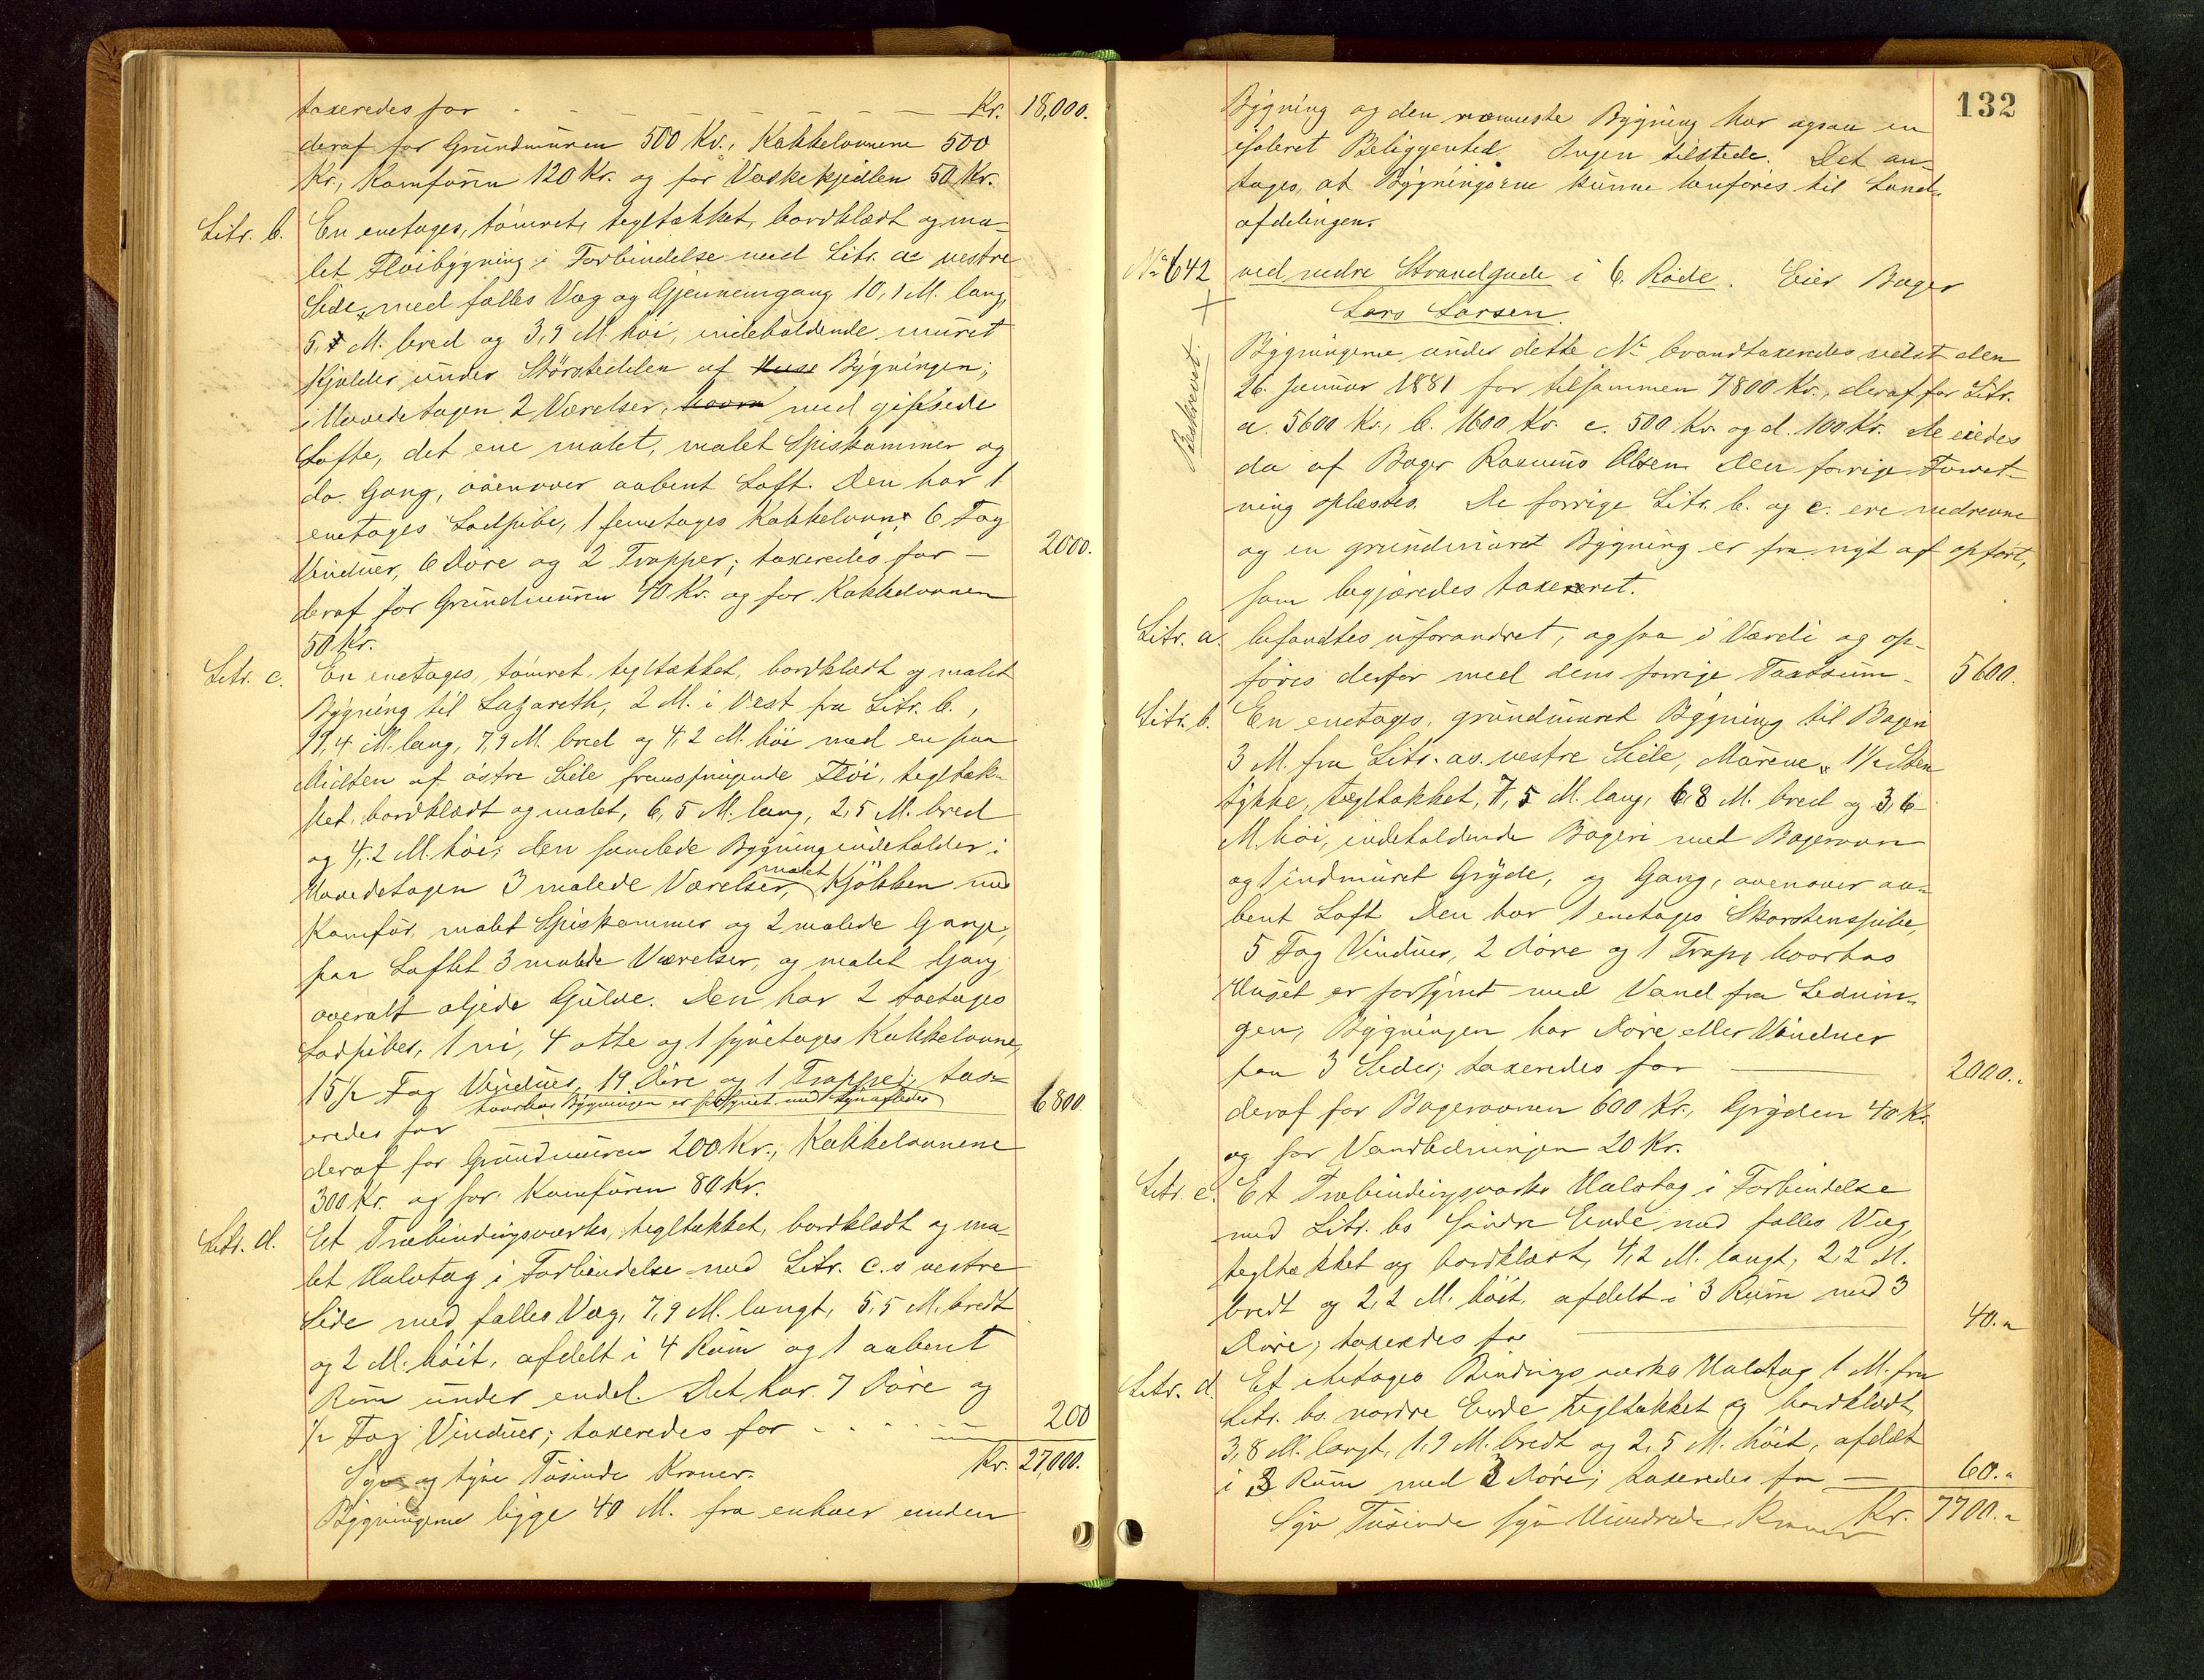 taxeredes for - - - - - - - Kr. 18,000.
deraf for Grundmuren 500 Kr., Kakkelovnene 500
Kr., Komfuren 120 Kr. og for Vaskekjedlen 50 Kr.
Litr. b. En enetages, tømret, tegltækket, bordklædt og ma-
let Fløibygning i Forbindelse med Litr. as vestre
Side, med fælles Væg og Gjennemgang 10,1 M. lang,
5, M. bred og 3,9 M. høi, indeholdende muret
Kjælder under Størstedelen af Huse Bygningen;
i Hovedetagen 2 Værelser, hvoraf med gipsede
Lofte, det ene malet, malet Spiskammer og
do. Gang, ovenover aabent Loft. Den har 1
enetages Lodpibe, 1 femetages Kakkelovn, 6 Fag
Vinduer, 6 Døre og 2 Trapper; taxeredes for — 2000.
deraf for Grundmuren 40 Kr. og for Kakkelovnen
50 Kr.
Litr. c. En enetages, tømret, tegltækket, bordklædt og malet
Bygning til Lazareth, 2 M. i Vest fra Litr. b.,
19,4 M. lang, 7,9 M. bred og 4,2 M. høi med en paa
Midten af østre Side fremspringende Fløi, tegltæk-
ket, bordklædt og malet, 6,5 M. lang, 2,5 M. bred
og 4,2 M. høi; den samlede Bygning indeholder i
Hovedetagen 3 malede Værelser, malet Kjøkken med
Komfur, malet Spiskammer og 2 malede Gange,
paa Loftet 3 malede Værelser, og malet Gang,
overalt oljede Gulve. Den har 2 toetages
Lodpiber, 1 ni, 4 otte og 1 syvetages Kakkelovne,
15 1/2 Fag Vinduer, 19 Døre og 1 Trappe; tax-
hvorhos Bygningen er forsynet med Lynafleder
eredes for 6800
deraf for Grundmuren 200 Kr., Kakkelovnene
300 Kr. og for Komfuren 80 Kr.
Litr. d. Et Træbindingsværks, tegltækket, bordklædt og ma-
let Halvtag i Forbindelse med Litr. c.s vestre
Side med fælles Væg, 7,9 M. langt, 5,5 M. bredt
og 2 M. høit, afdelt i 4 Rum og 1 aabent
Rum under endel. Det har 7 Døre og
1/2 Fag Vinduer; taxeredes for - - - 200
Syv og tyve Tusinde Kroner. Kr. 27,000.
Bygningerne ligge 40 M. fra enhver anden
132
Bygning og den nærmeste Bygning har ogsaa en
isoleret Beliggenhed. Ingen tilstede. Det an-
tages, at Bygningerne kunne henføres til Land-
afdelingen.
No 642 ved nedre Strandgade i 6. Rode. Eier Bager
Lars Larsen.
Beskrevet.
Bygningerne under dette No brandtaxeredes sidst den
26. Januar 1881 for tilsammen 7800 Kr., deraf for Litr.
a. 5600 Kr., b. 1600 Kr. c. 500 Kr. og d. 100 Kr. De eiedes
da af Bager Rasmus Olsen. Den forrige Forret-
ning oplæstes. De forrige Litr. b. og c. ere nedrevne
og en grundmuret Bygning er fra nyt af opført,
som begjæredes taxeret.
Litr. a. befandtes uforandret, ogsaa i Værdi og op-
føres derfor med dens forrige Taxtsum - 5600.
Litr. b. En enetages, grundmuret Bygning til Bageri
3 M. fra Litr. as. vestre Side, Murene 1 1/2 Sten
tykke, tegltækket, 7,5 M. lang, 6,8 M. bred og 3,6
M. høi, indeholdende Bageri med Bagerovn
og 1 indmuret Gryde, og Gang, ovenover aa-
bent Loft. Den har 1 enetages Skorstenspibe,
5 Fag Vinduer, 2 Døre og 1 Trap, hvorhos
Huset er forsynet med Vand fra Lednin-
gen; Bygningen har Døre eller Vinduer
paa 3 Sider; taxeredes for — 2000.
deraf for Bagerovnen 600 Kr., Gryden 40 Kr.
og for Vandledningen 20 Kr.
Litr. c. Et Træbindingsværks Halvtag i Forbindelse
med Litr. bs søndre Ende, med fælles Væg,
tegltækket og bordklædt, 4,2 M. langt, 2,2 M.
bredt og 2,2 M. høit, afdelt i 3 Rum med 3
Døre; taxeredes for — 40.
Litr. d. Et etetages Bindingsværks Halvtag 1 M. fra
Litr. bs. nordre Ende tegltækket og bordklædt,
3,8 M. langt, 1,9 M. bredt og 2,5 M. høit, afdelt
i 3 Rum med 3 Døre; taxeredes for — 60.
Syv Tusinde syv Hundrede Kroner Kr. 7700.